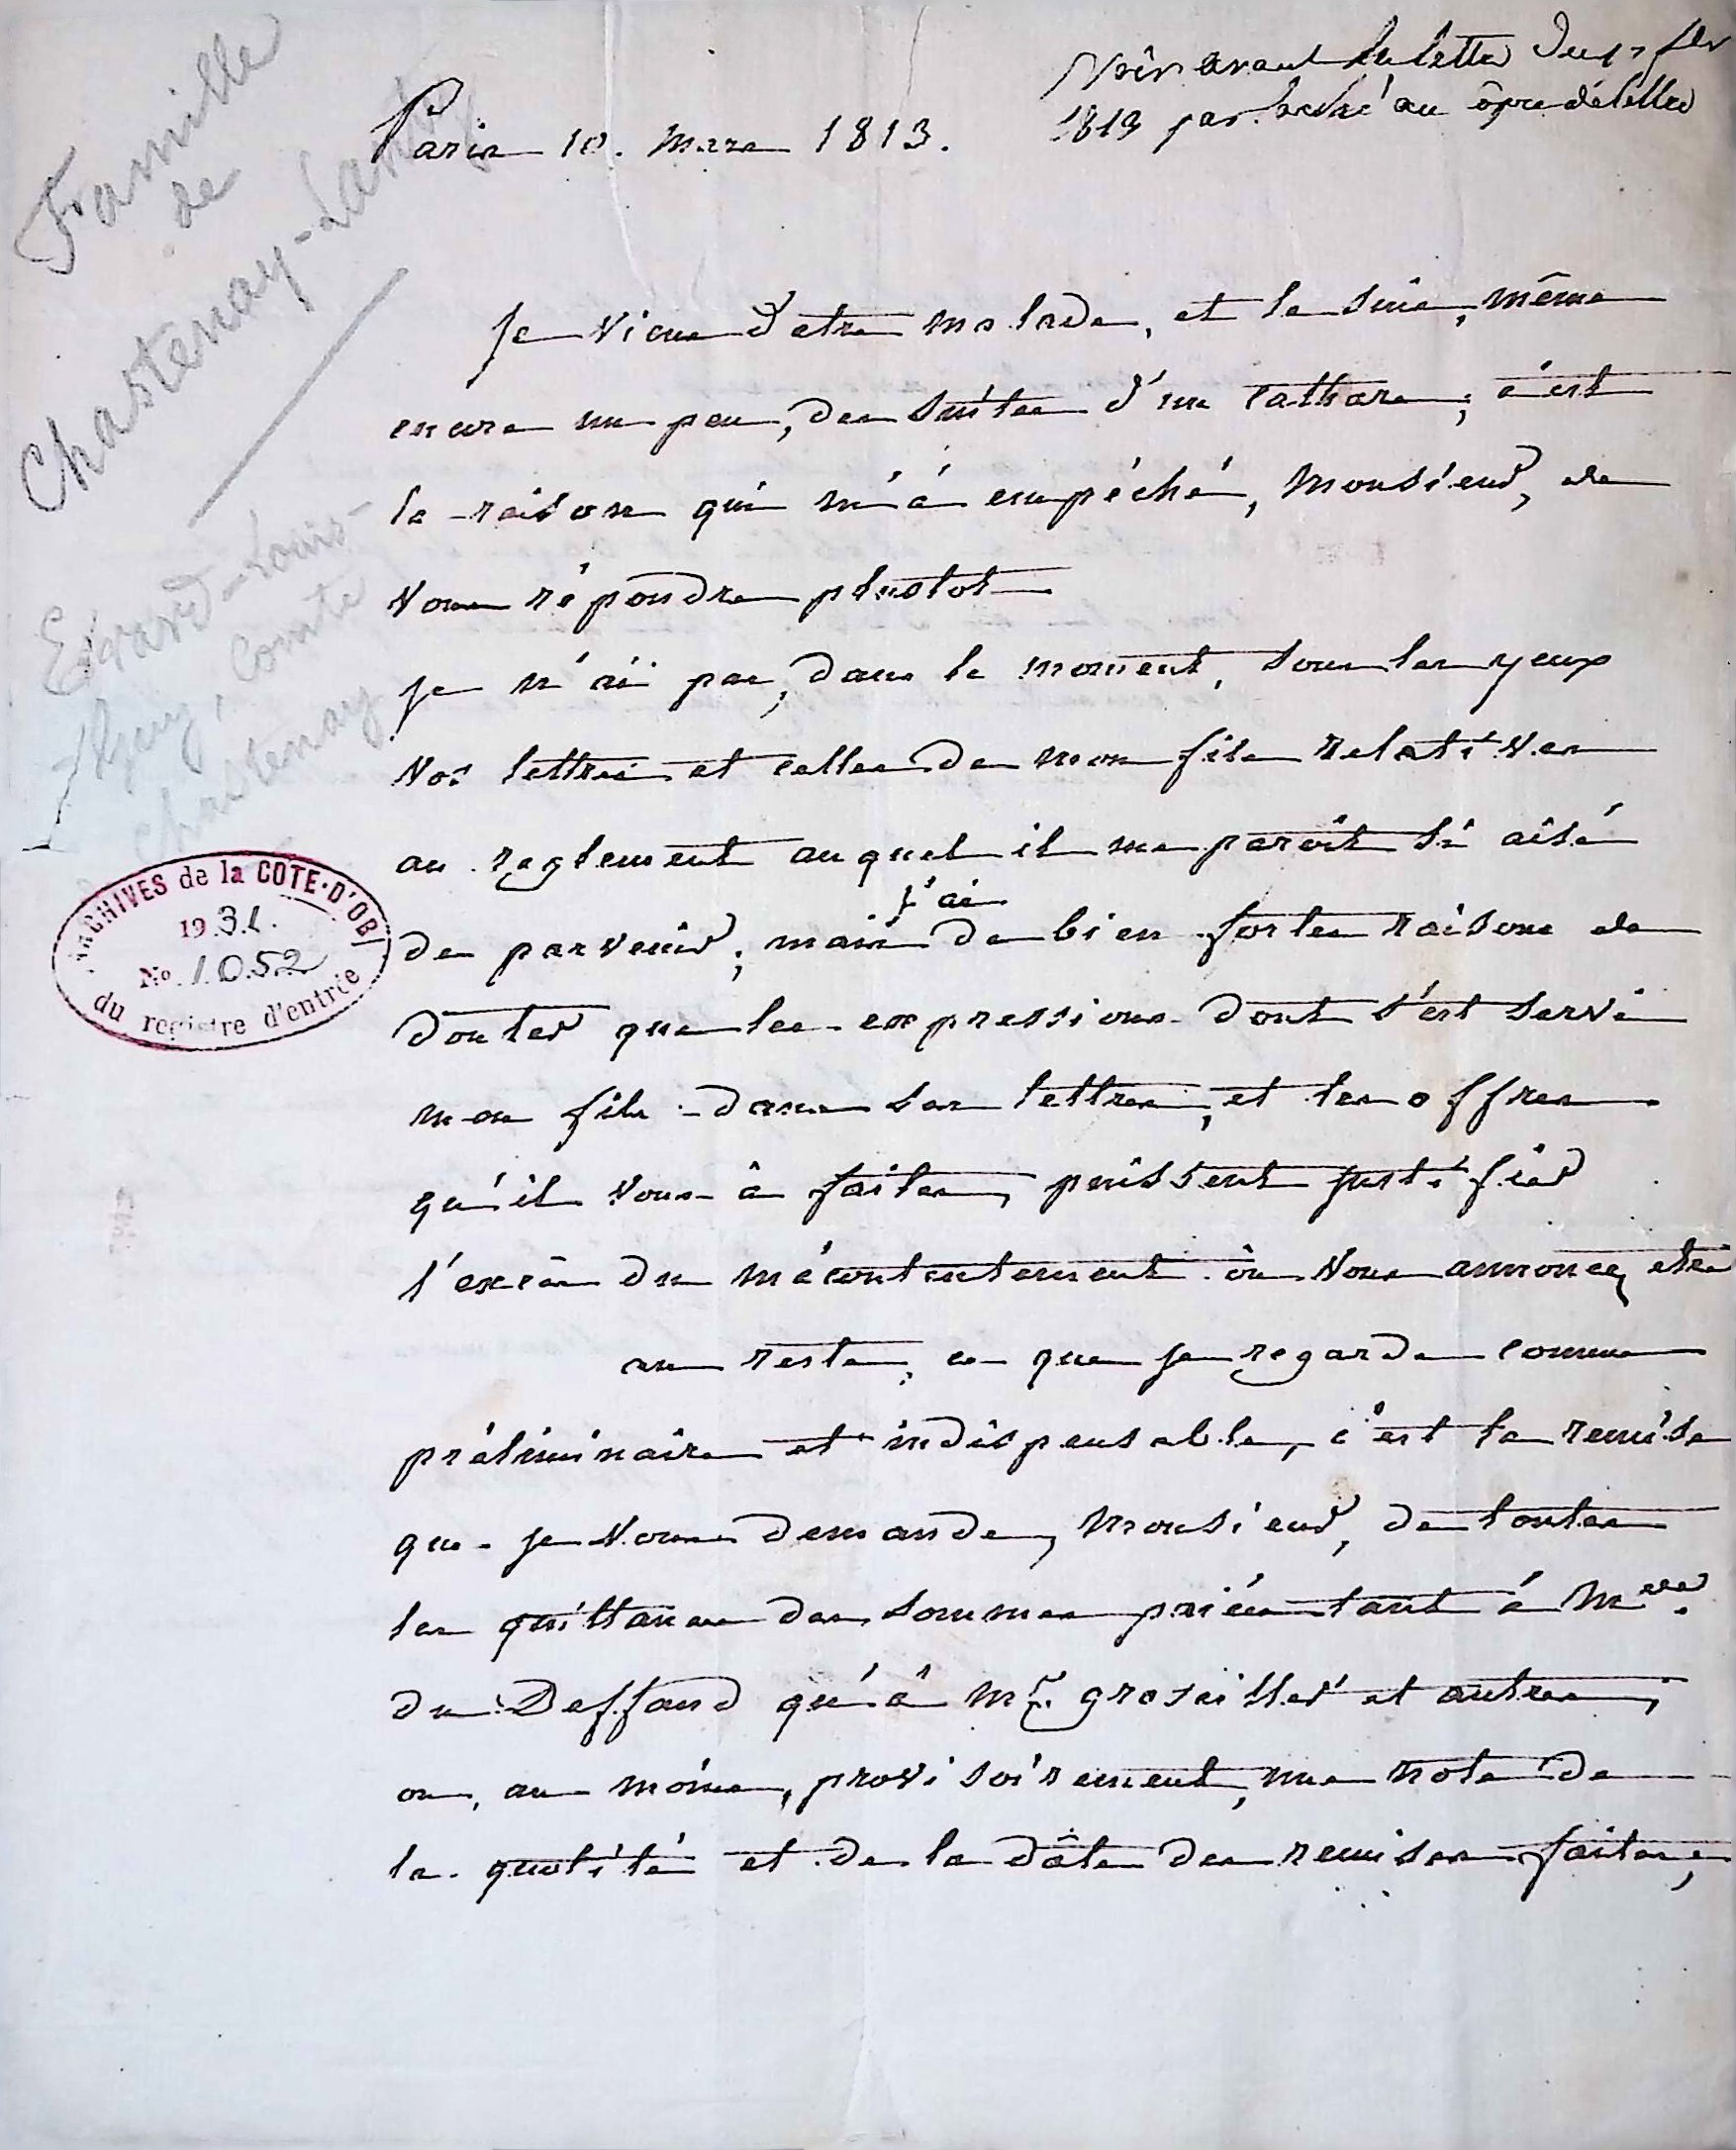 Famille
de
Chastenay-Lanty
Erard-Louis-
Guy, Comte
Chastenay
ARCHIVES de la COTE-D'OR
1931.
No. 1052
du registre d'entrée
Voir avant la lettre du
1813
Paris 10. mars 1813.
Je viens d'etre malade, et le suis, même
encore un peu, des suites d'un catharre; c'est
la raison qui m'á empéché, Monsieur, de
vous répondre plustot
je n'ai pas, dans le moment, sous les yeux
vos lettres et celles de mon fils relatives
au reglement auquel il me paroît si aisé
de parvenir; mais j'ai de bien fortes raisons de
douter que les expressions dont s'est servi
mon fils dans ses lettres, et les offres
qu'il vous â faites, puissent justifier
l'excès du mécontentement où vous annoncez etre
au reste, ce que je regarde comme
préliminaire et indispensable, c'est la remise
que je vous demande, Monsieur, de toutes
les quittances des sommes païées tant á Mde.
du Deffand qu'á Mr. groseiller et autres,
ou, au moins, provisoirement, une note de
la quotité et de la dâte des remises faites,